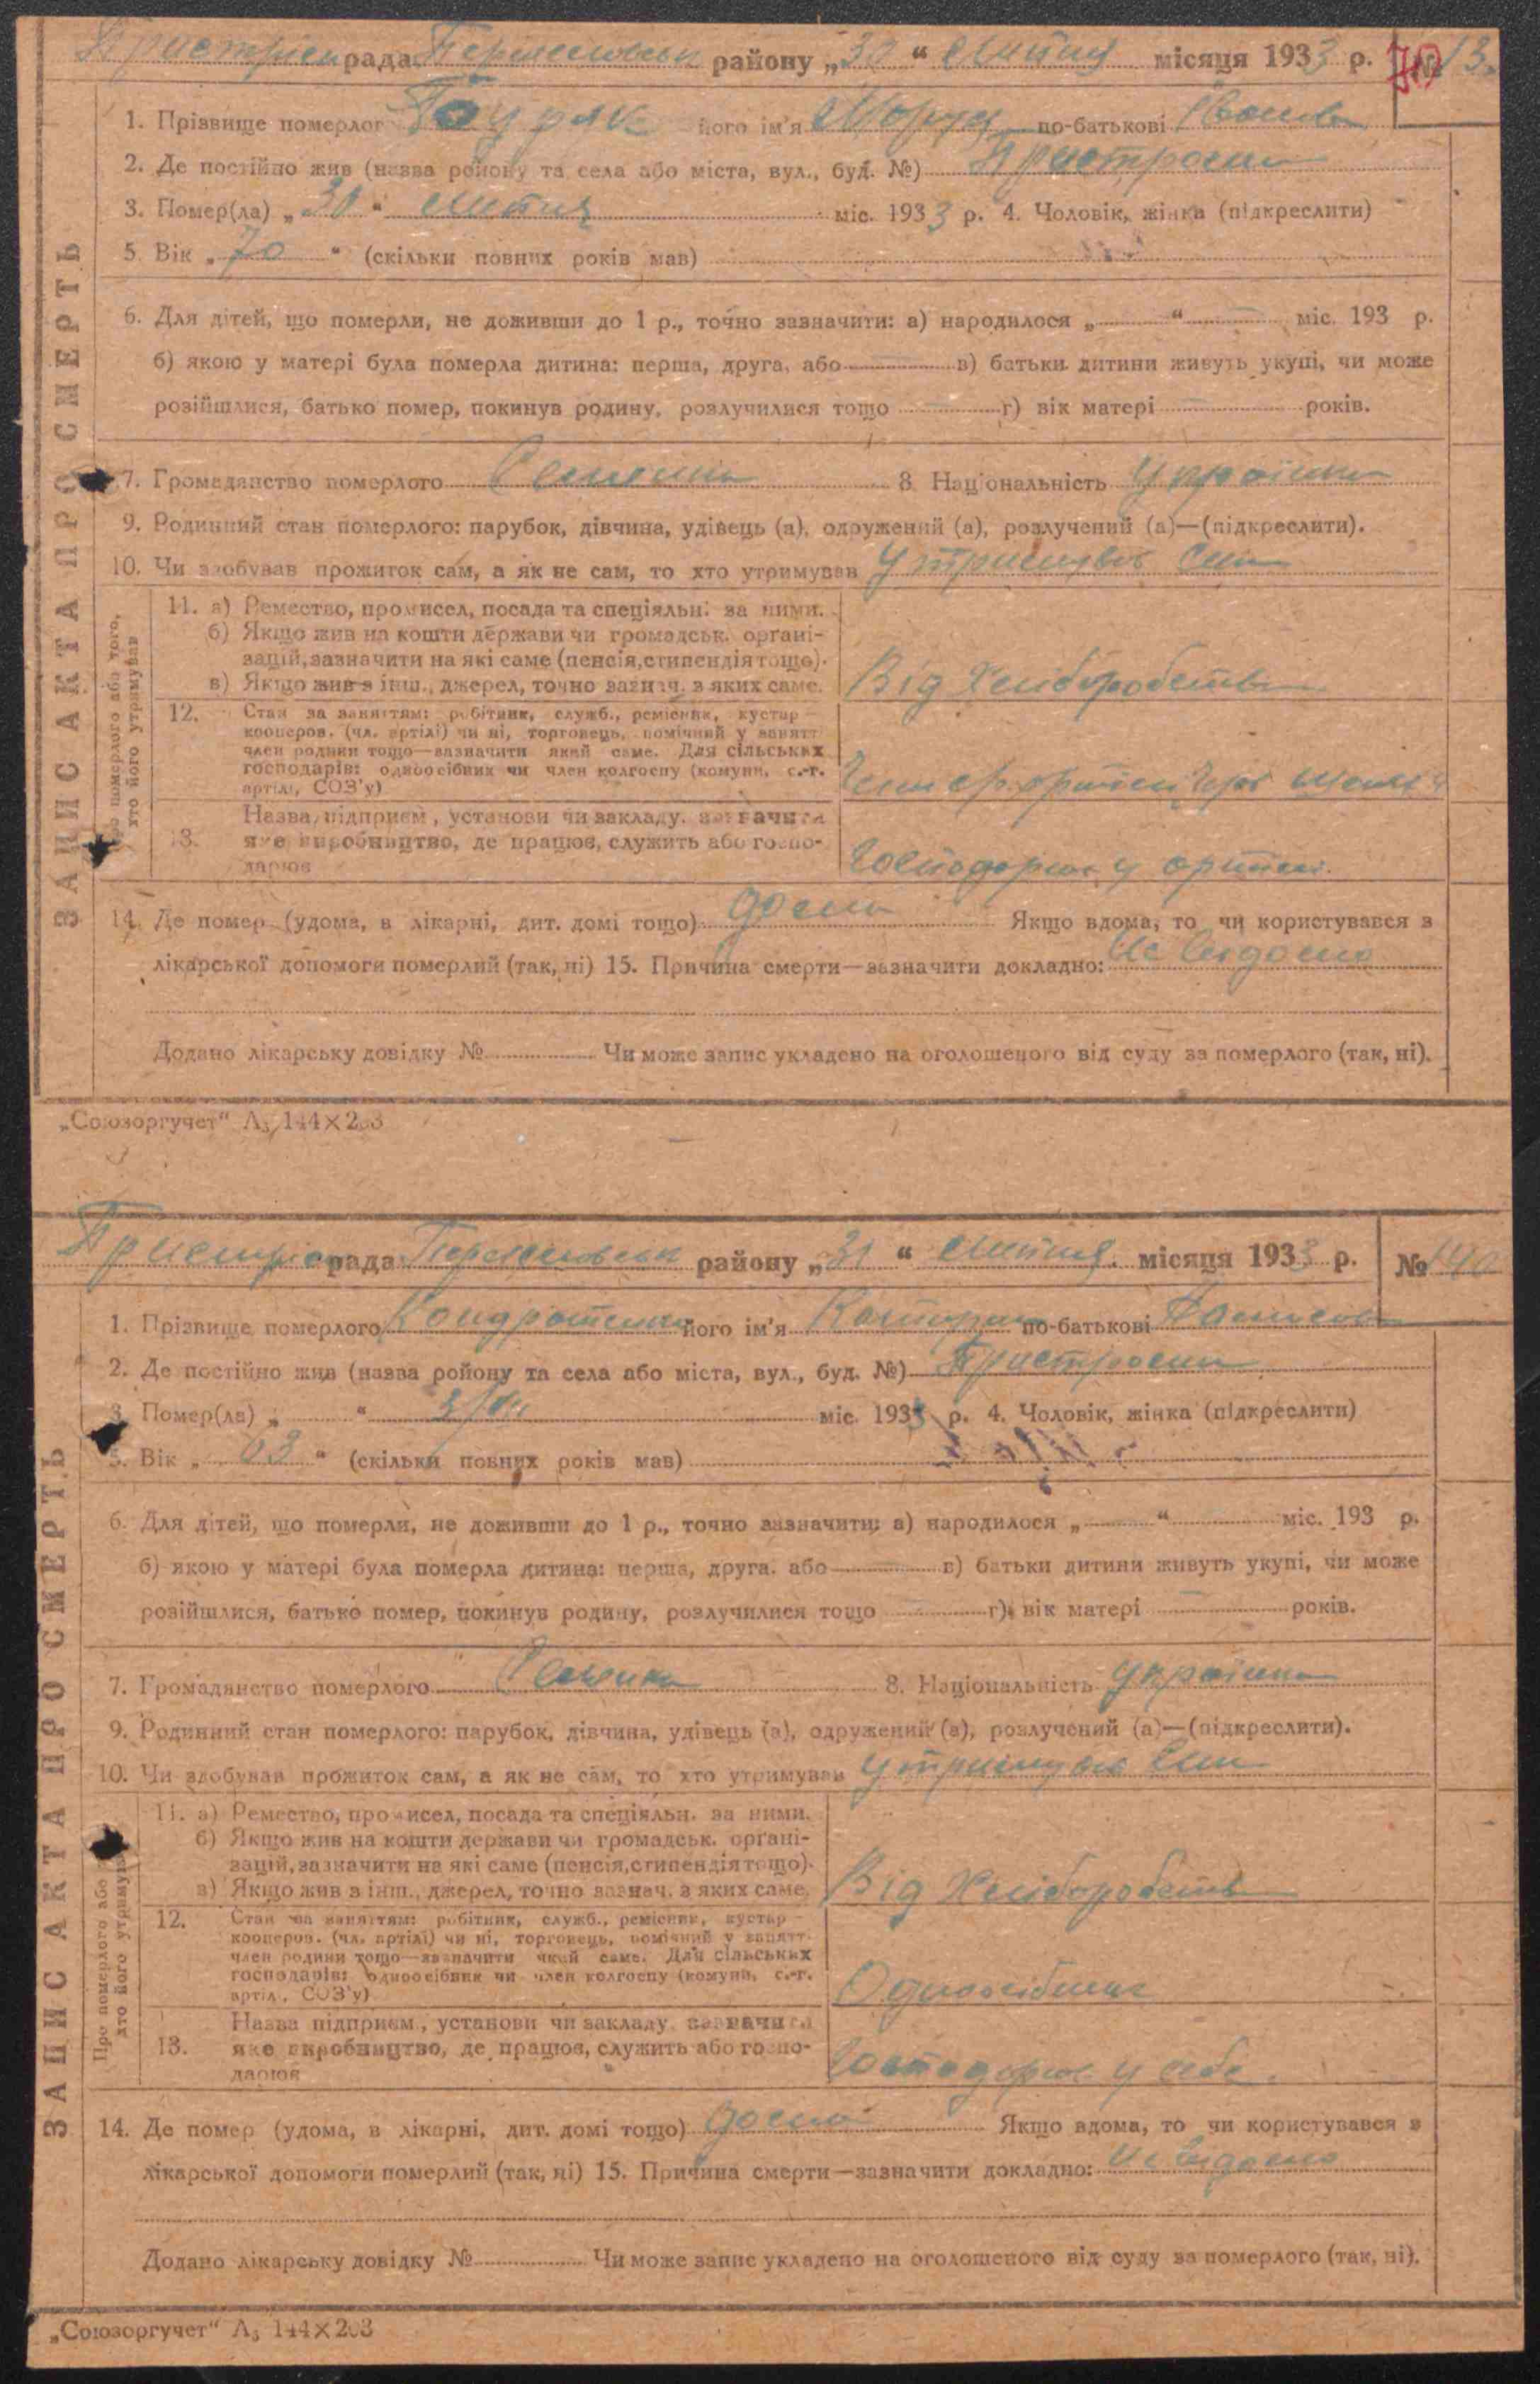 рада району „30“ липня місяця 1933 р. № 13
1. Прізвище померлог Буряк його ім'я по-батькові Іванів
2. Де постійно жив (назва району та села або міста, вул., буд. №) Пристроми
3. Помер(ла) „30“ липня міс. 1933 р. 4. Чоловік, жінка (підкреслити)
5. Вік „70“ (скільки повних років мав)
6. Для дітей, що померли, не доживши до 1 р., точно зазначити: а) народилося „ “ міс. 193 р.
б) якою у матері була померла дитина: перша, друга, або в) батьки дитини живуть укупі, чи може
розійшлися, батько помер, покинув родину, розлучилися тощо г) вік матері років.
7. Громадянство померлого 8. Національність Україн
9. Родинний стан померлого: парубок, дівчина, удівець (а), одружений (а), розлучений (а)—(підкреслити).
10. Чи здобував прожиток сам, а як не сам, то хто утримував Утримував син
11. а) Ремество, промисел, посада та спеціяльн. за ними.
б) Якщо жив на кошти держави чи громадськ. органі-
зацій, зазначити на які саме (пенсія, стипендія тощо).
в) Якщо жив з інш., джерел, точно зазнач. з яких саме. Від Хліборобства
12. Стан за заняттям: робітник, служб., ремісник, кустар —
кооперов. (чл. артілі) чи ні, торговець, помічний у занятт
член родини тощо—зазначити який саме. Для сільських
господарів: одноосібник чи член колгоспу (комуни, с.-г.
артілі, СОЗ'у)
Назва підприєм., установи чи закладу, зазначити
13. яке виробництво, де працює, служить або госпо-
дарює Господарює у артілі.
14. Де помер (удома, в лікарні, дит. домі тощо) дома Якщо вдома, то чи користувався з
лікарської допомоги померлий (так, ні) 15. Причина смерти—зазначити докладно: Не відомо
Додано лікарську довідку № Чи може запис укладено на оголошеного від суду за померлого (так, ні).
ЗАПИС АКТА ПРО СМЕРТЬ
Про померлого або того,
хто його утримував
„Союзоргучет“ А₅ 144×203
рада району „31“ липня місяця 1933 р. № 140
1. Прізвище померлого Кондратенко його ім'я по-батькові
2. Де постійно жив (назва району та села або міста, вул., буд. №) Пристроми
3. Помер(ла) „ “ міс. 1933 р. 4. Чоловік, жінка (підкреслити)
5. Вік „63“ (скільки повних років мав)
6. Для дітей, що померли, не доживши до 1 р., точно зазначити: а) народилося „ “ міс. 193 р.
б) якою у матері була померла дитина: перша, друга, або в) батьки дитини живуть укупі, чи може
розійшлися, батько помер, покинув родину, розлучилися тощо г) вік матері років.
7. Громадянство померлого 8. Національність Україн
9. Родинний стан померлого: парубок, дівчина, удівець (а), одружений (а), розлучений (а)—(підкреслити).
10. Чи здобував прожиток сам, а як не сам, то хто утримував Утримував син
11. а) Ремество, промисел, посада та спеціяльн. за ними.
б) Якщо жив на кошти держави чи громадськ. органі-
зацій, зазначити на які саме (пенсія, стипендія тощо).
в) Якщо жив з інш., джерел, точно зазнач. з яких саме. Від Хліборобства
12. Стан за заняттям: робітник, служб., ремісник, кустар —
кооперов. (чл. артілі) чи ні, торговець, помічний у занятт.
член родини тощо—зазначити який саме. Для сільських
господарів: одноосібник чи член колгоспу (комуни, с.-г.
артілі, СОЗ'у) Одноосібник
Назва підприєм., установи чи закладу, зазначити
13. яке виробництво, де працює, служить або госпо-
дарює Господарює у себе.
14. Де помер (удома, в лікарні, дит. домі тощо) дома Якщо вдома, то чи користувався з
лікарської допомоги померлий (так, ні) 15. Причина смерти—зазначити докладно: Не відомо
Додано лікарську довідку № Чи може запис укладено на оголошеного від суду за померлого (так, ні).
ЗАПИС АКТА ПРО СМЕРТЬ
Про померлого або
хто його утримував
„Союзоргучет“ А₅ 144×203